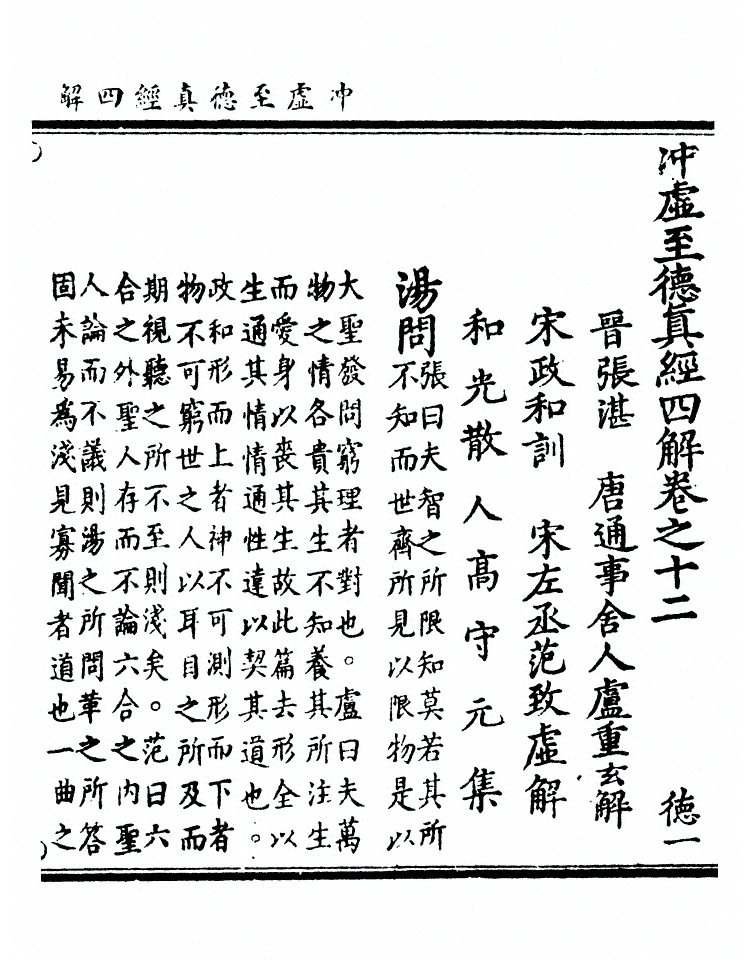 冲虛至德真經四解
冲虛至德真經四解卷之十二　德一
晉張湛　唐通事舍人盧重玄解
宋政和訓　宋左丞范致虛解
和光散人高守元集
湯問
張曰夫智之所限知莫若其所
不知而世齊所見以限物是以
大聖發問窮理者對也。盧曰夫萬
物之情各貴其生不知養其所注生
而愛身以喪其生故此篇去形全以
生通其情情通性達以契其道也。
政和形而上者神不可測形而下者
物不可窮世之人以耳目之所及而
期視聽之所不至則淺矣。范曰六
合之外聖人存而不論六合之內聖
人論而不議則湯之所問革之所答
固未易為淺見寡聞者道也一曲之